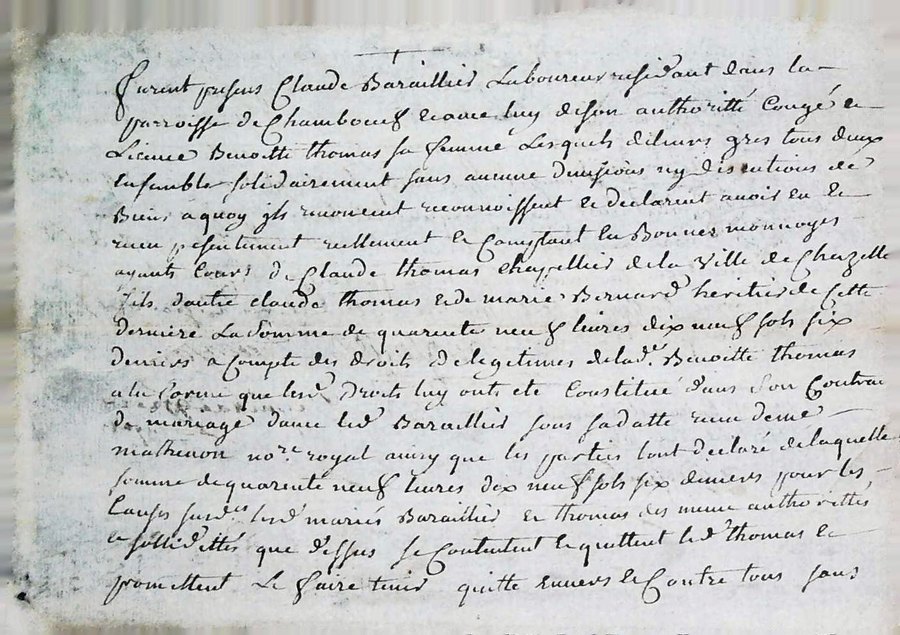 furent presens Claude Baraillier Laboureur residant dans la
parroisse de Chambœuf et avec luy de son authoritté Congé et
Licence Benoitte thomas sa femme Lesquels de leurs gres tous deux
Ensembles solidairement sans aucune divisions ny discutions de
Biens a quoy ils renoncent reconnoissent et declarent avoir eu et
receu presentement reellement et Comptant En Bonnes monnoyes
ayants Cours de Claude thomas chapellier de la Ville de Chazelle
fils d'autre claude thomas et de marie Bernard heritier de Cette
derniere La somme de quarente neuf livres dix neuf sols six
deniers a Compte des droits de legetimes de lad.e Benoitte thomas
a la forme que lesd. droits luy onts eté Constitué dans son Contrat
de mariage d'avec led Baraillier sous sa datte receu de me
mathevon no.re royal ainsy que les parties l'ont declaré de laquelle
somme de quarente neuf livres dix neuf sols six deniers pour les
Causes susd.es lesd mariés Baraillier et thomas des meme authorittés
et sollidittés que d'essus se Contentent et quittent led thomas et
promettent Le faire tenir quitte Envers et Contre tous sans